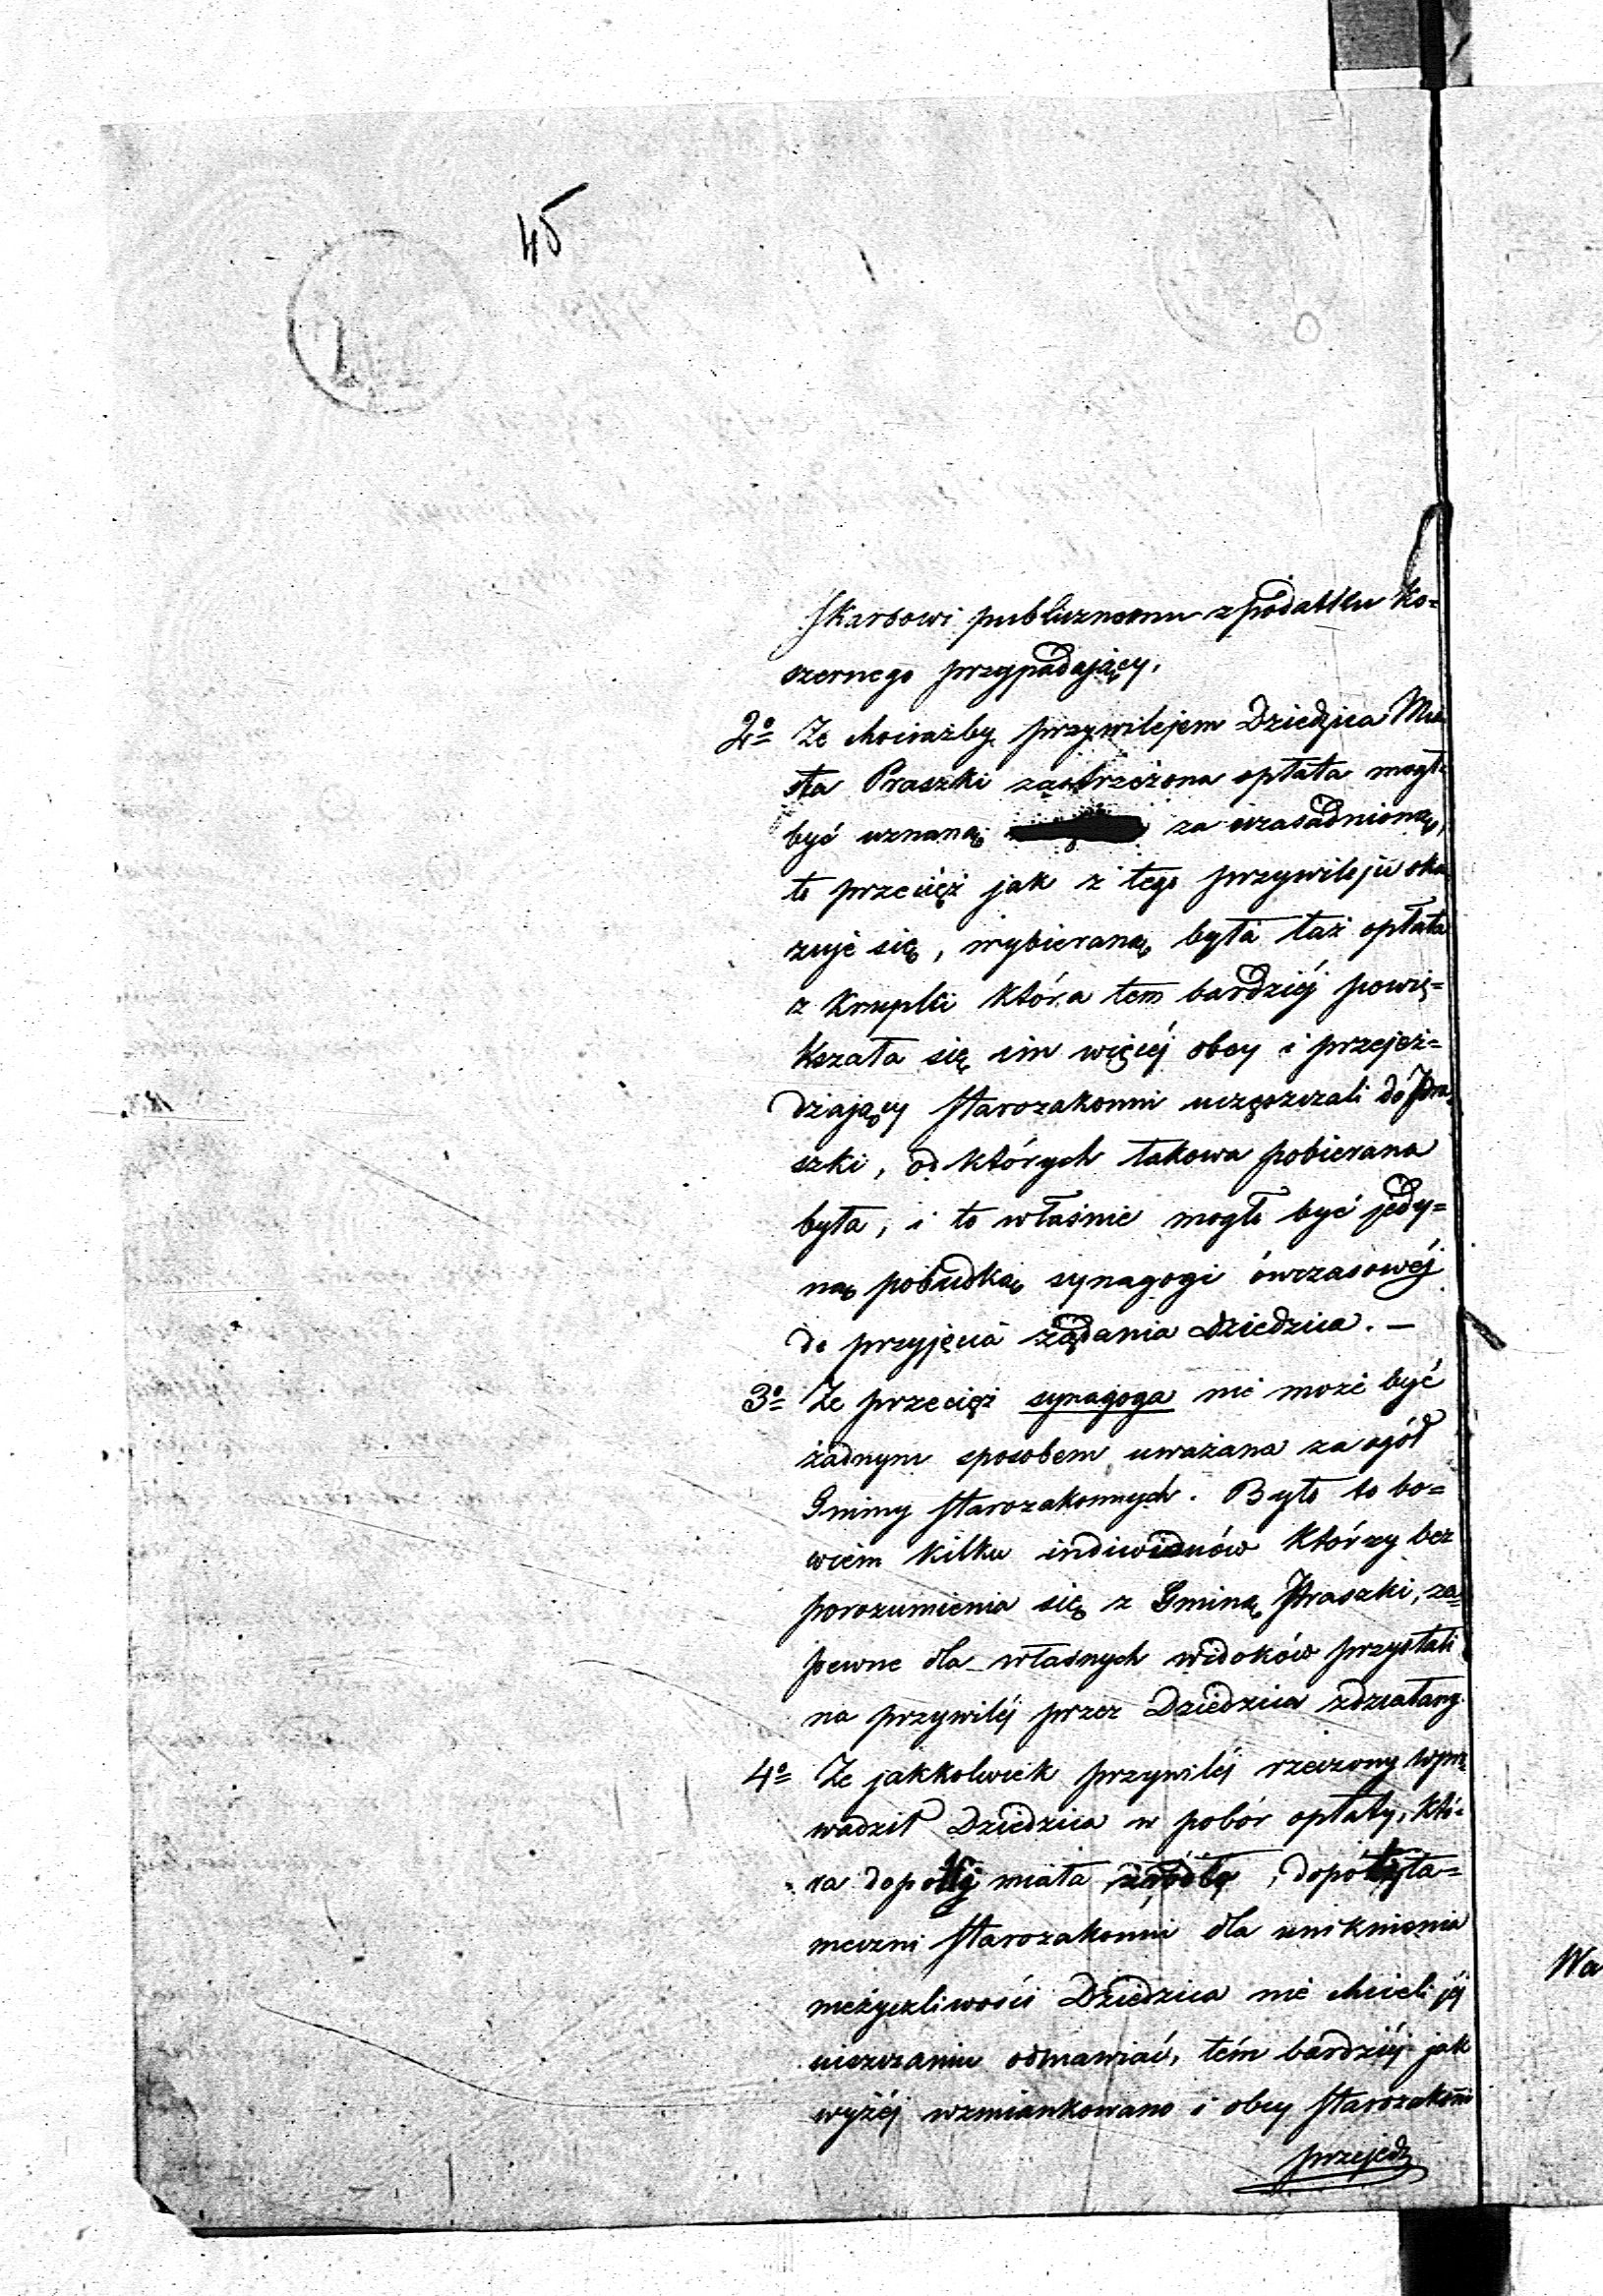 45
Skarbowi publicznemu z podatku ko=
szernego przypadający.
2o Że chociażby przywilejem Dziedzica Mia
sta Praszki zastrzeżona opłata mogła
być uznaną za uzasadnioną,
to przecięż jak z tego przywileju oka
zuje się, wybieraną była taż opłata
z Krupki która tem bardziéj powię=
kszała się im więcéj obcy i przejeż=
dżający starozakonni uczęszczali do Pra
szki, od których takowa pobierana
była, i to właśnie mogło być jedy=
ną pobudką synagogi ówczasowéj
do przyjęcia żądania Dziedzica. —
3o Że przecięż synagoga nie może być
żadnym sposobem uważana za ogół
Gminy starozakonnych. Było to bo=
wiem kilku indiwiduów którzy bez
porozumienia się z Gminą Praszki, za=
pewne dla własnych widoków przystali
na przywiléj przez Dziedzica zdziałany.
4o Że jakkolwiek przywiléj rzeczony wpro
wadził Dziedzica w pobór opłaty, któ=
ra dopóty miała źródło, dopóki ta=
meczni starozakonni dla uniknienia
nieżyczliwości Dziedzica nie chcieli jéj
uiszczaniu odmawiać, tém bardziéj jak
wyżéj wzmiankowano i obcy starozakonni
przejeżdż
Wa